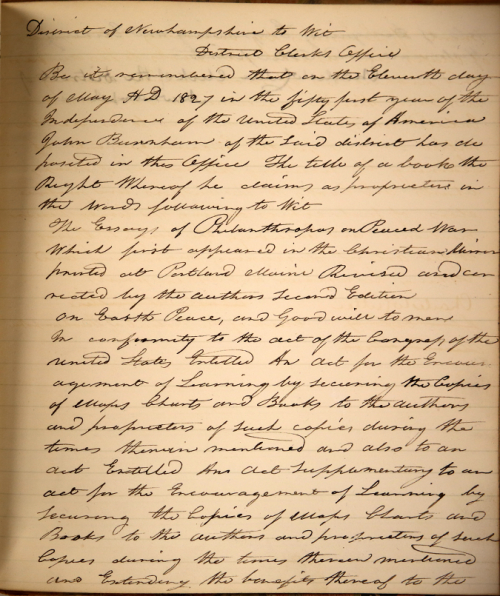 District of Newhampshire to Wit
District Clerks Office
Be it remembered that on the Eleventh day
of May AD 1827 in the fifty first year of the
Independence of the United States of America
John Burnham of the Said district has de
posited in this Office The title of a book the
Right Whereof he claims as proprietor in
the words following to Wit
The Essays of Philanthropos on Peace & War
Which first appeared in the Christian Mirror
printed at Portland Maine Revised and cor
rected by the authors Second Edition
on Earth Peace, and Good will to men
In conformity to the act of the Congress of the
United States Entitled An act for the Encour
agement of Learning by securing the Copies
of Maps Charts and Books to the authors
and proprietors of such copies during the
times therein mentioned and also to an
act Entitled An act Supplementary to an
act for the Encouragement of Learning by
securing the Copies of Maps Charts and
Books to the authors and proprietors of such
Copies during the times therein mentioned
and Extending the benefits thereof to the